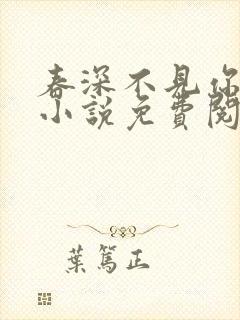 春深不見你
小說免費閱
葉篤正